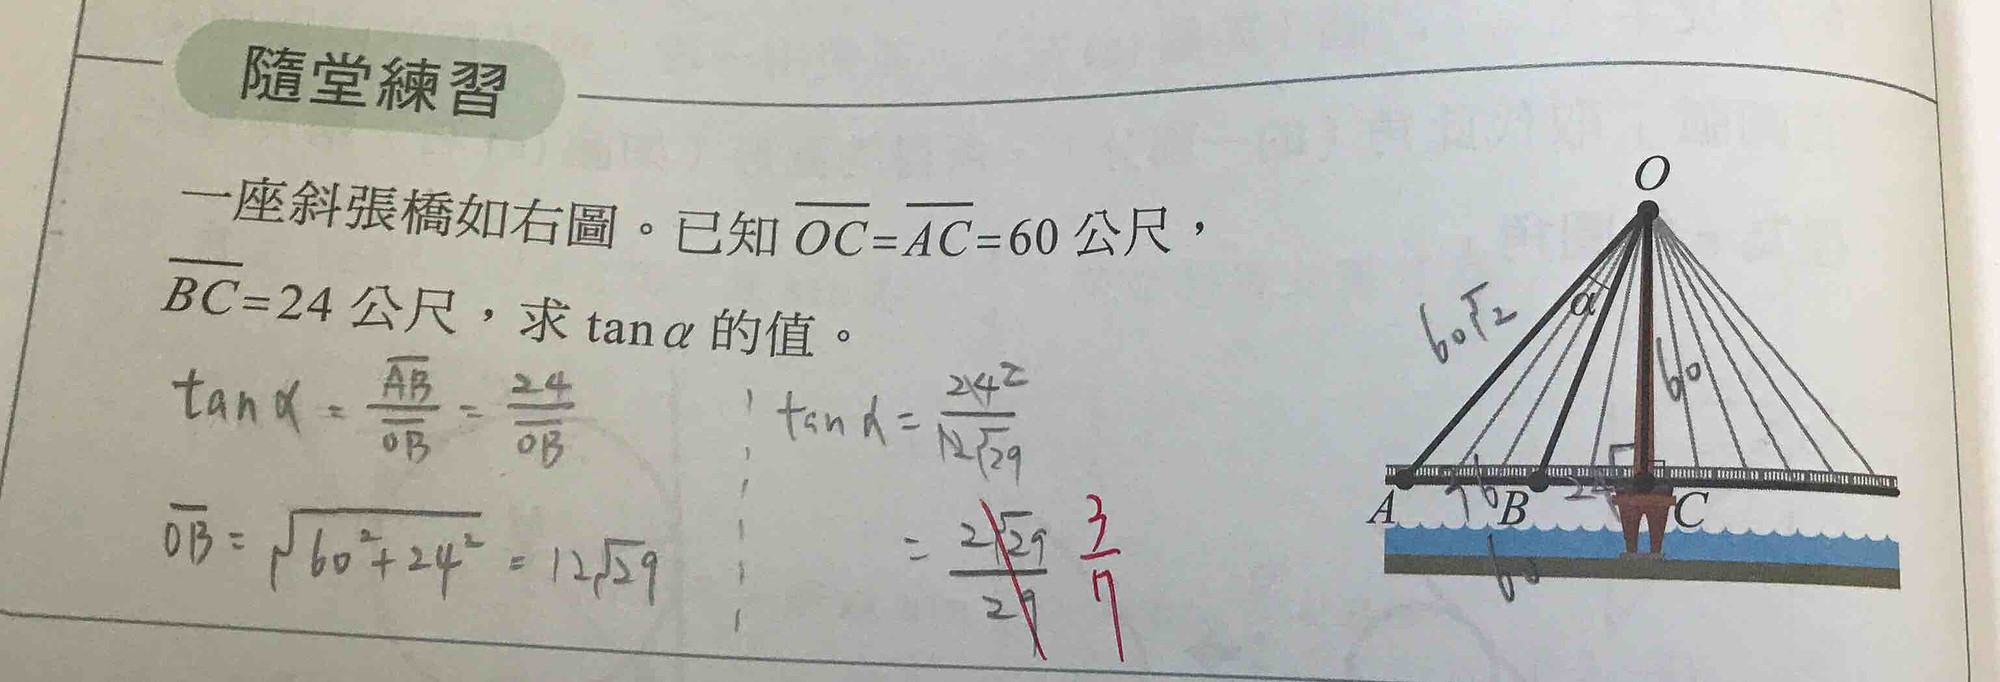 隨堂練習
一座斜張橋如右圖。已知 \overline{OC}=\overline{AC}=60 公尺，
\overline{BC}=24 公尺，求 tanα 的值。
tanα = \frac{\overline{AB}}{\overline{OB}} = \frac{24}{\overline{OB}}
\overline{OB} = \sqrt{60^2+24^2} = 12\sqrt{29}
tanα = \frac{24^2}{12\sqrt{29}}
= \frac{2\sqrt{29}}{29} \frac{3}{7}
O
α
60√2
60
A
36
B
24
C
60